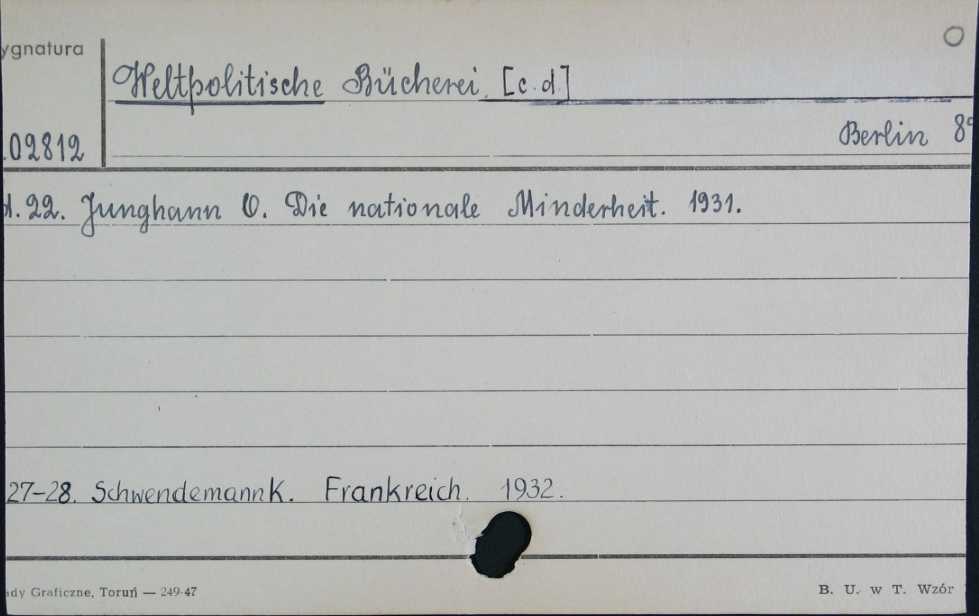 ygnatura
Weltpolitische Bücherei. [c.d.]
02812
Berlin 8°
d. 22. Junghann O. Die nationale Minderheit. 1931.
27-28. Schwendemann K. Frankreich. 1932.
ady Graficzne, Toruń — 249-47
B. U. w T. Wzór